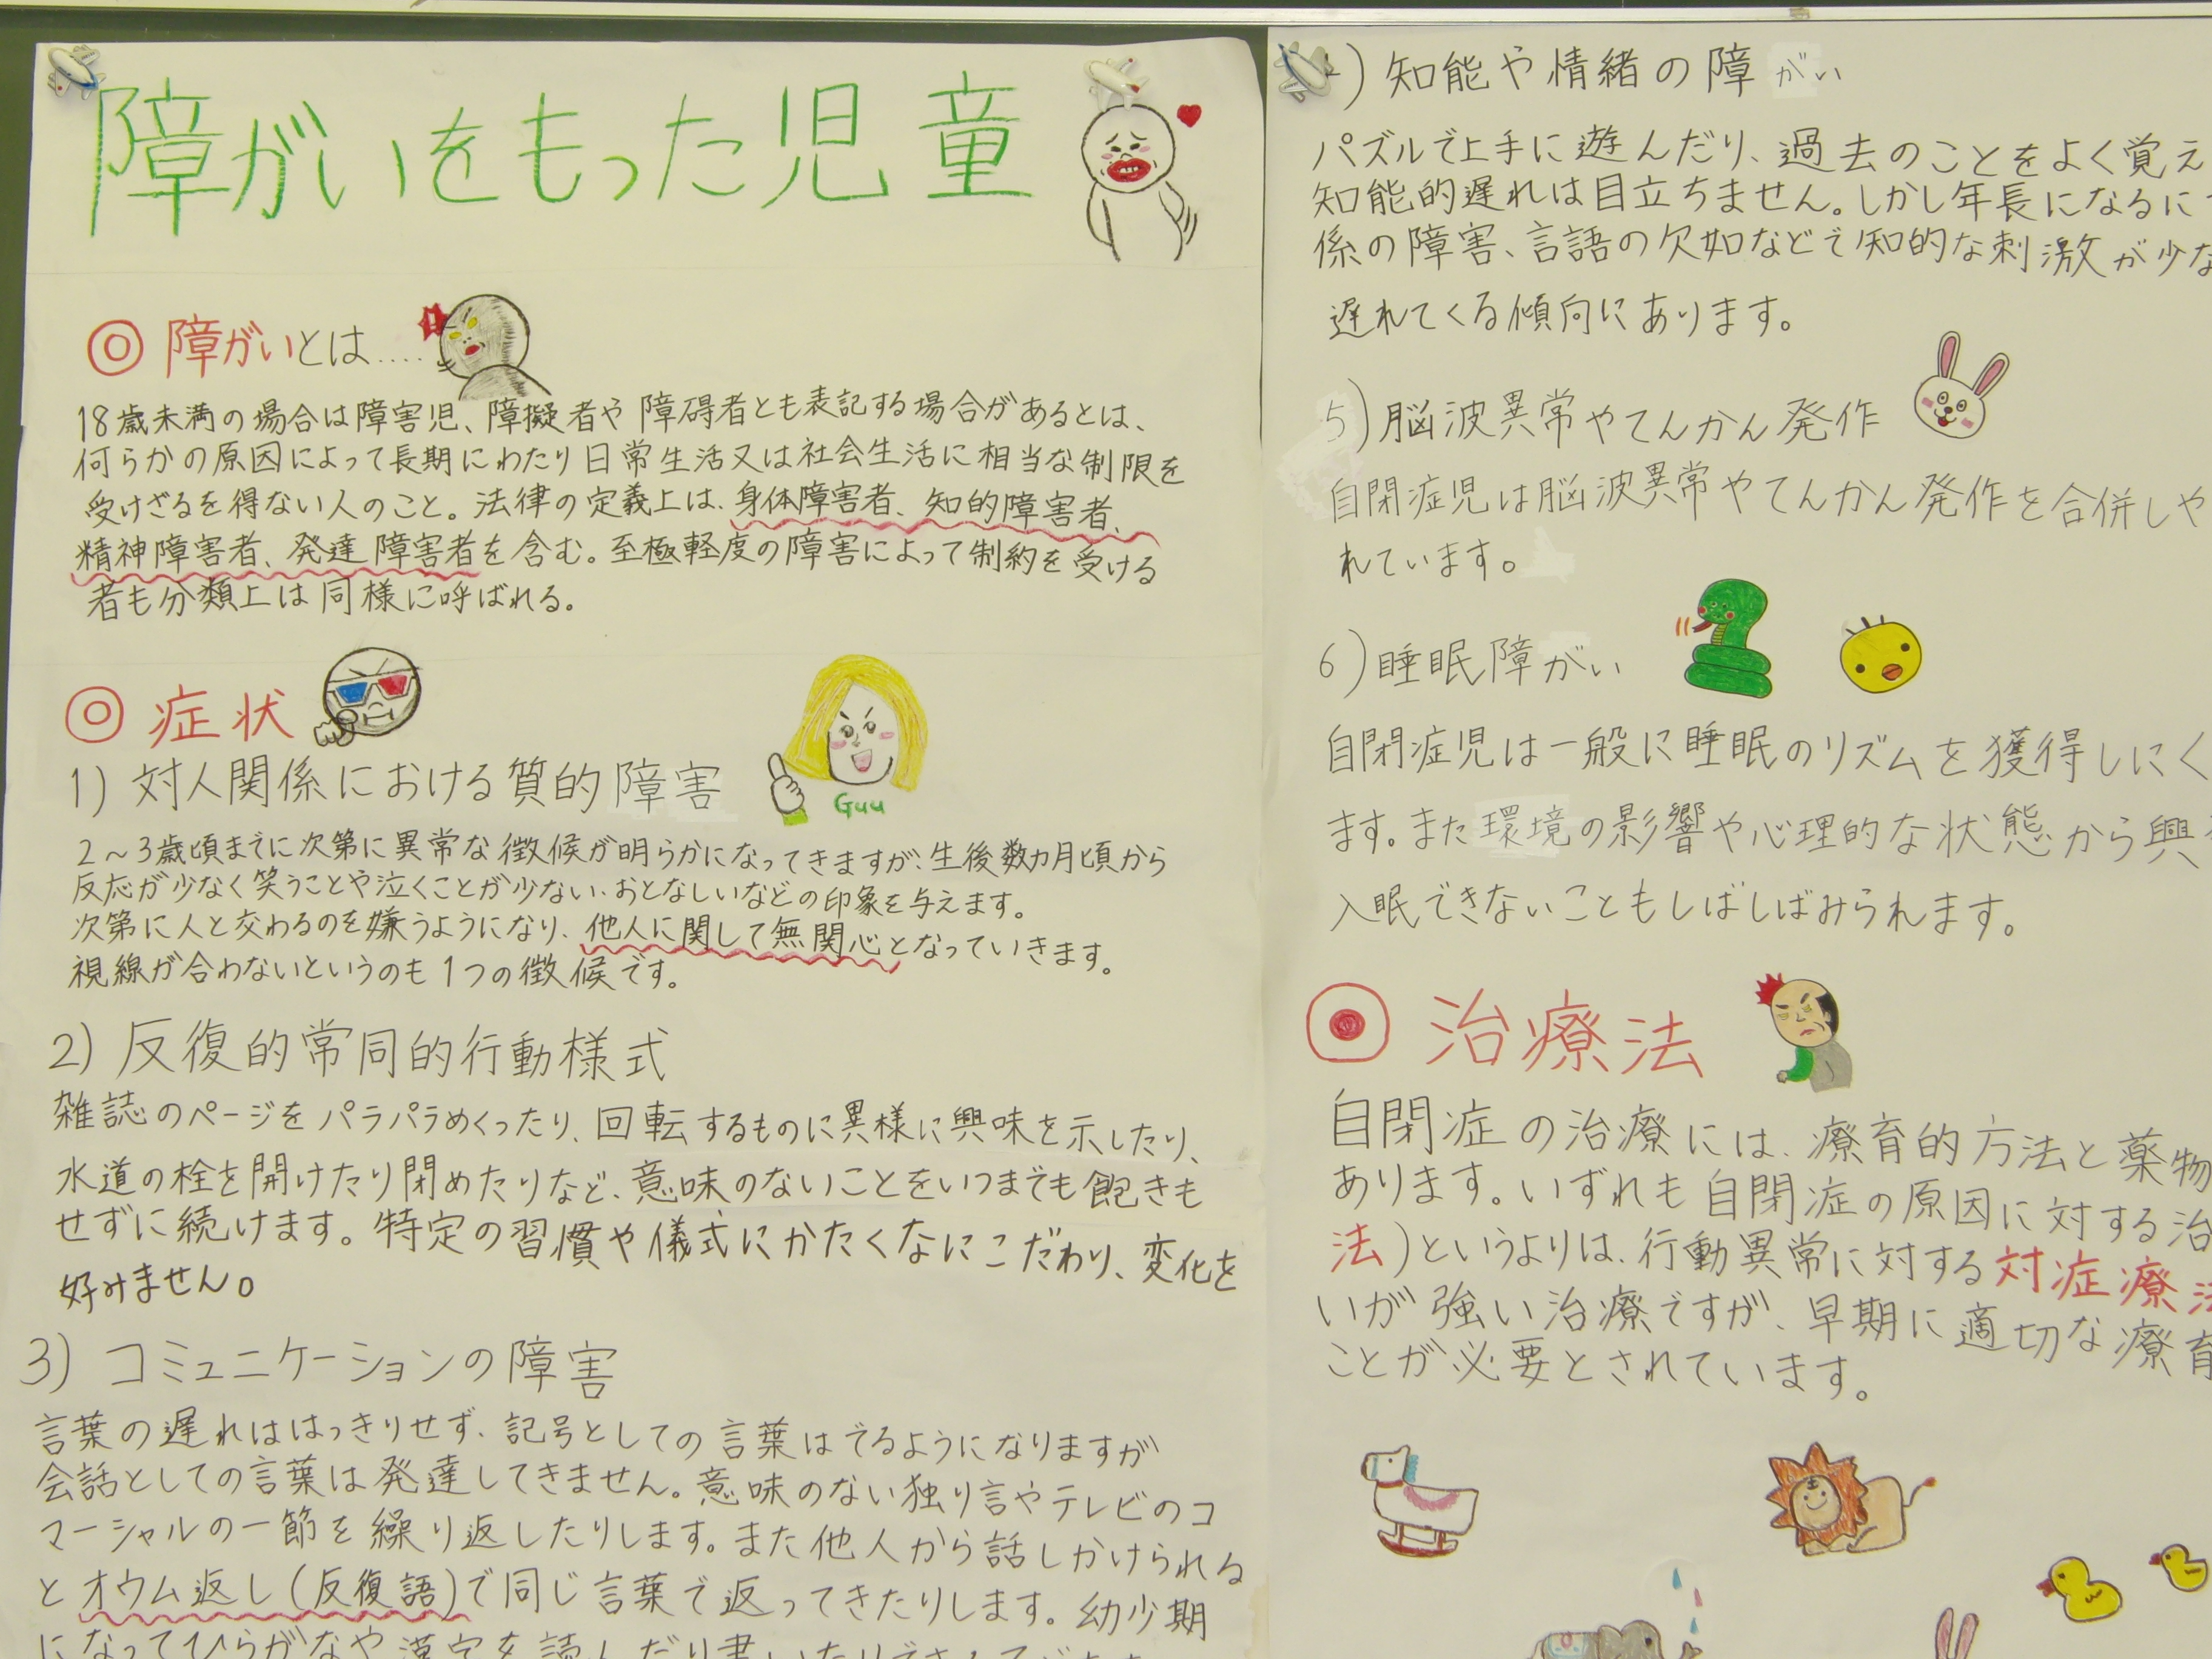 障がいをもった児童
◎ 障がいとは....
18歳未満の場合は障害児、障擬者や障碍者とも表記する場合があるとは、
何らかの原因によって長期にわたり日常生活又は社会生活に相当な制限を
受けざるを得ない人のこと。法律の定義上は、身体障害者、知的障害者、
精神障害者、発達障害者を含む。至極軽度の障害によって制約を受ける
者も分類上は同様に呼ばれる。
◎ 症状
1) 対人関係における質的障害
Guu
2～3歳頃までに次第に異常な徴候が明らかになってきますが、生後数カ月頃から
反応が少なく笑うことや泣くことが少ない、おとなしいなどの印象を与えます。
次第に人と交わるのを嫌うようになり、他人に関して無関心となっていきます。
視線が合わないというのも1つの徴候です。
2) 反復的常同的行動様式
雑誌のページをパラパラめくったり、回転するものに異様に興味を示したり、
水道の栓を開けたり閉めたりなど、意味のないことをいつまでも飽きも
せずに続けます。特定の習慣や儀式にかたくなにこだわり、変化を
好みません。
3) コミュニケーションの障害
言葉の遅れははっきりせず、記号としての言葉はでるようになりますが
会話としての言葉は発達してきません。意味のない独り言やテレビのコ
マーシャルの一節を繰り返したりします。また他人から話しかけられる
とオウム返し(反復語)で同じ言葉で返ってきたりします。幼少期
になってひらがなや漢字を読んだり書いたりできる
) 知能や情緒の障がい
パズルで上手に遊んだり、過去のことをよく覚え
知能的遅れは目立ちません。しかし年長になるに
係の障害、言語の欠如などで知的な刺激が少な
遅れてくる傾向にあります。
5) 脳波異常やてんかん発作
自閉症児は脳波異常やてんかん発作を合併しや
れています。
6) 睡眠障がい
自閉症児は一般に睡眠のリズムを獲得しにく
ます。また環境の影響や心理的な状態から興
入眠できないこともしばしばみられます。
◎ 治療法
自閉症の治療には、療育的方法と薬物
あります。いずれも自閉症の原因に対する治
法)というよりは、行動異常に対する対症療法
いが強い治療ですが、早期に適切な療育
ことが必要とされています。